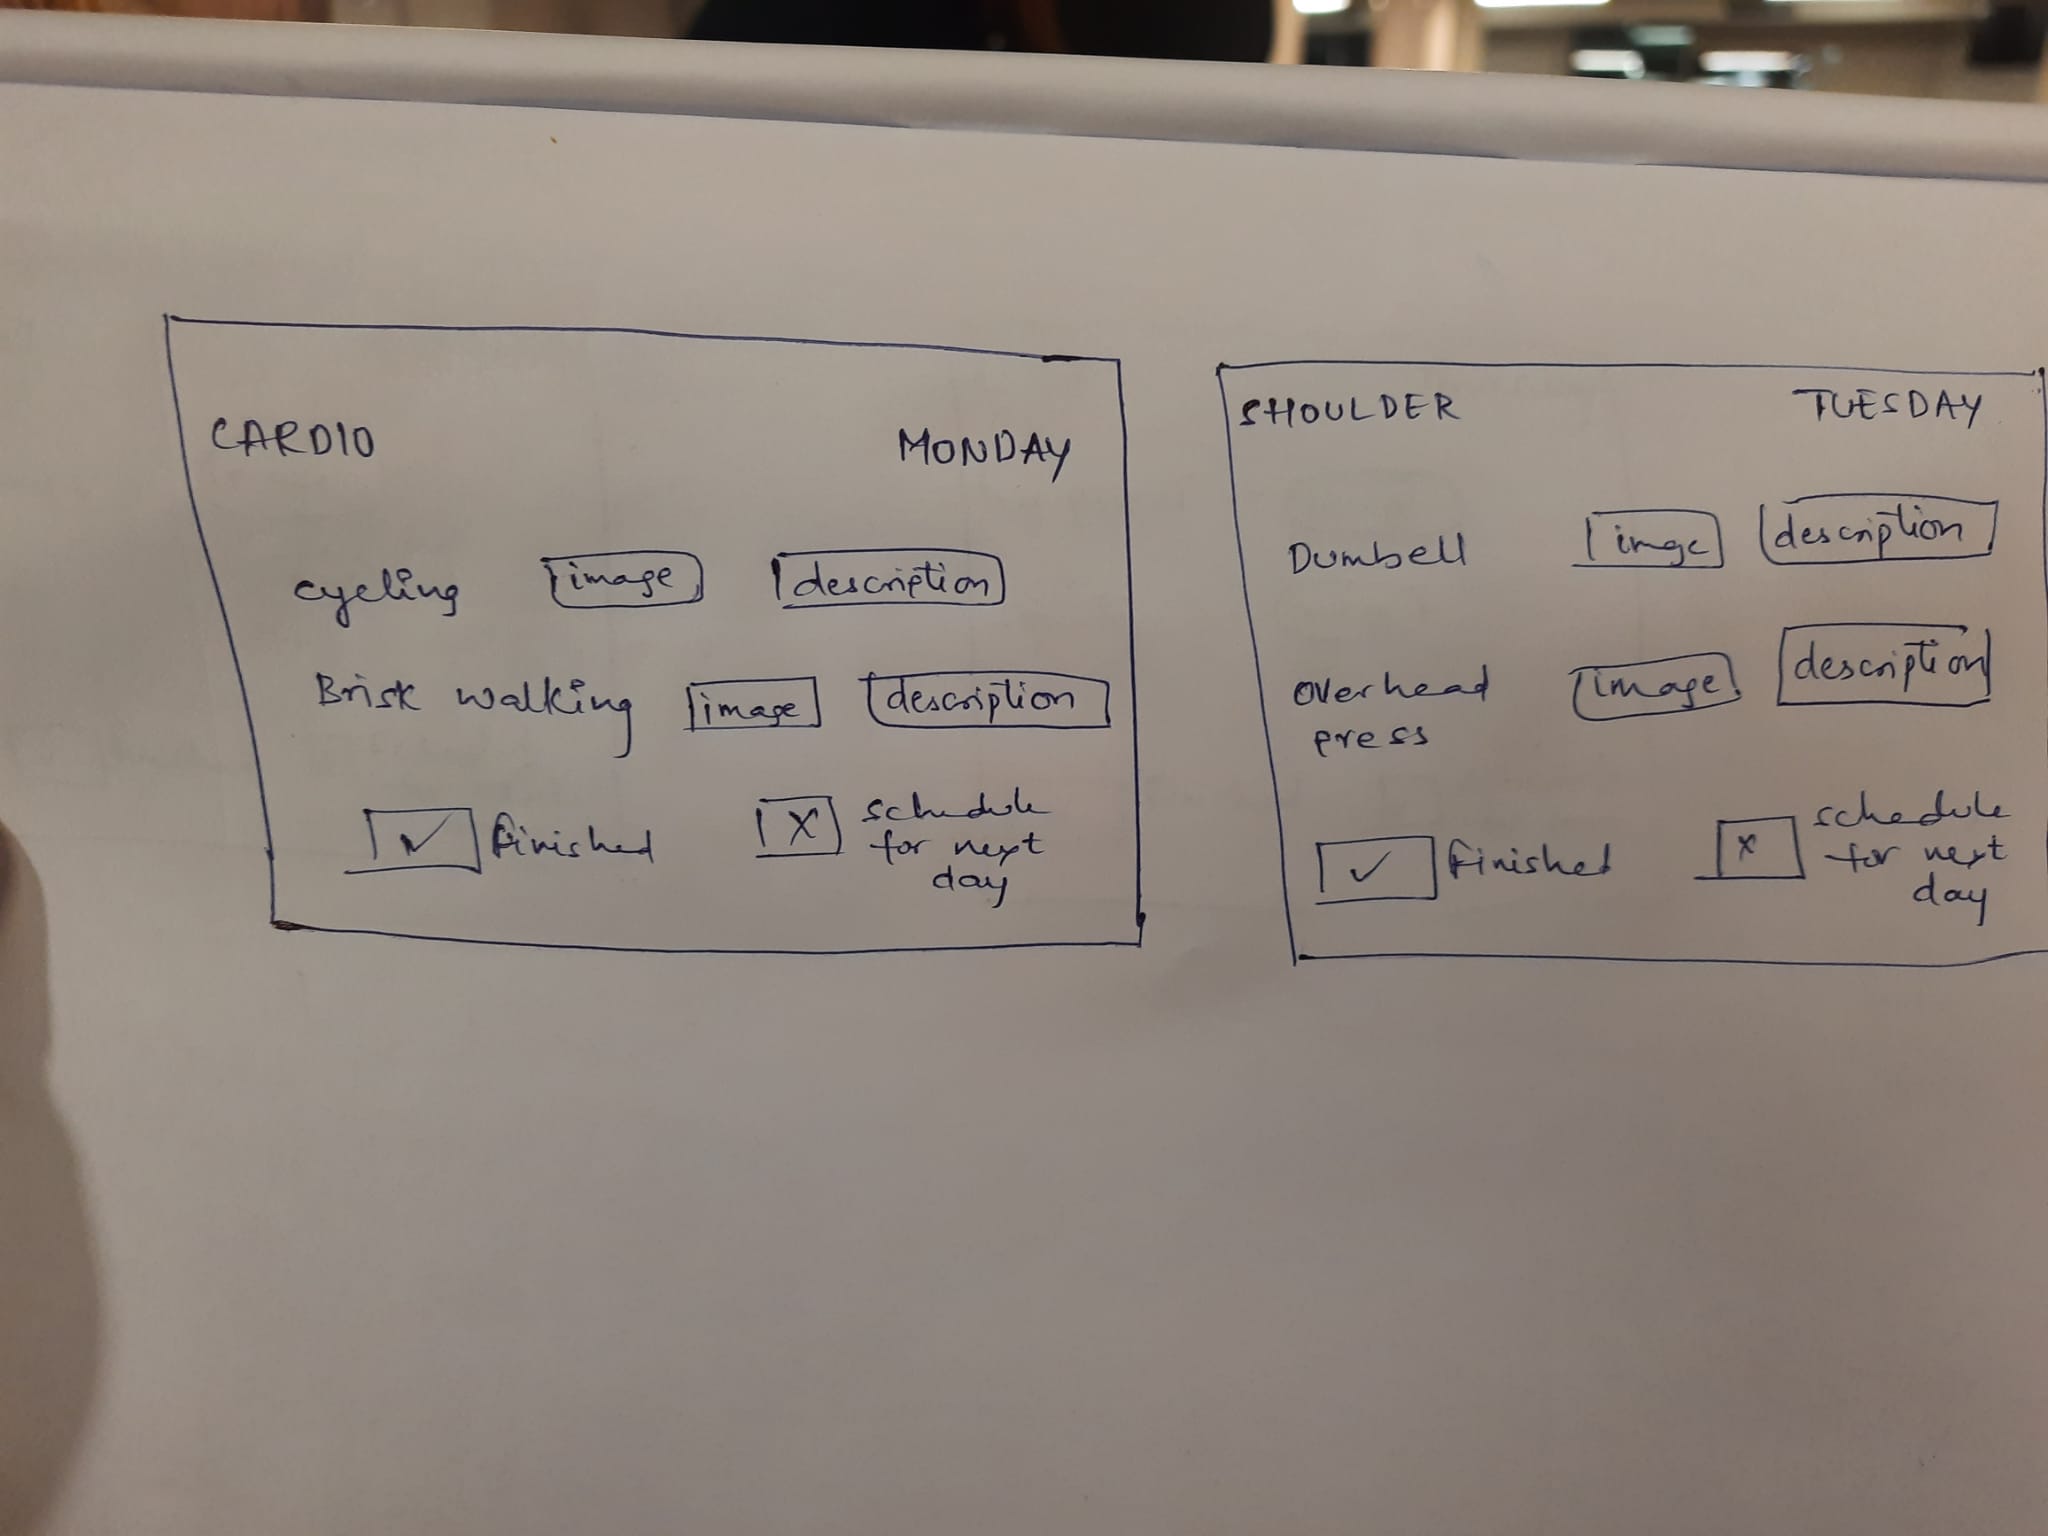 CARDIO MONDAY
cycling image description
Brisk walking image description
✓ Finished X schedule
for next
day
SHOULDER TUESDAY
Dumbell image description
overhead image description
press
✓ Finished x schedule
for next
day